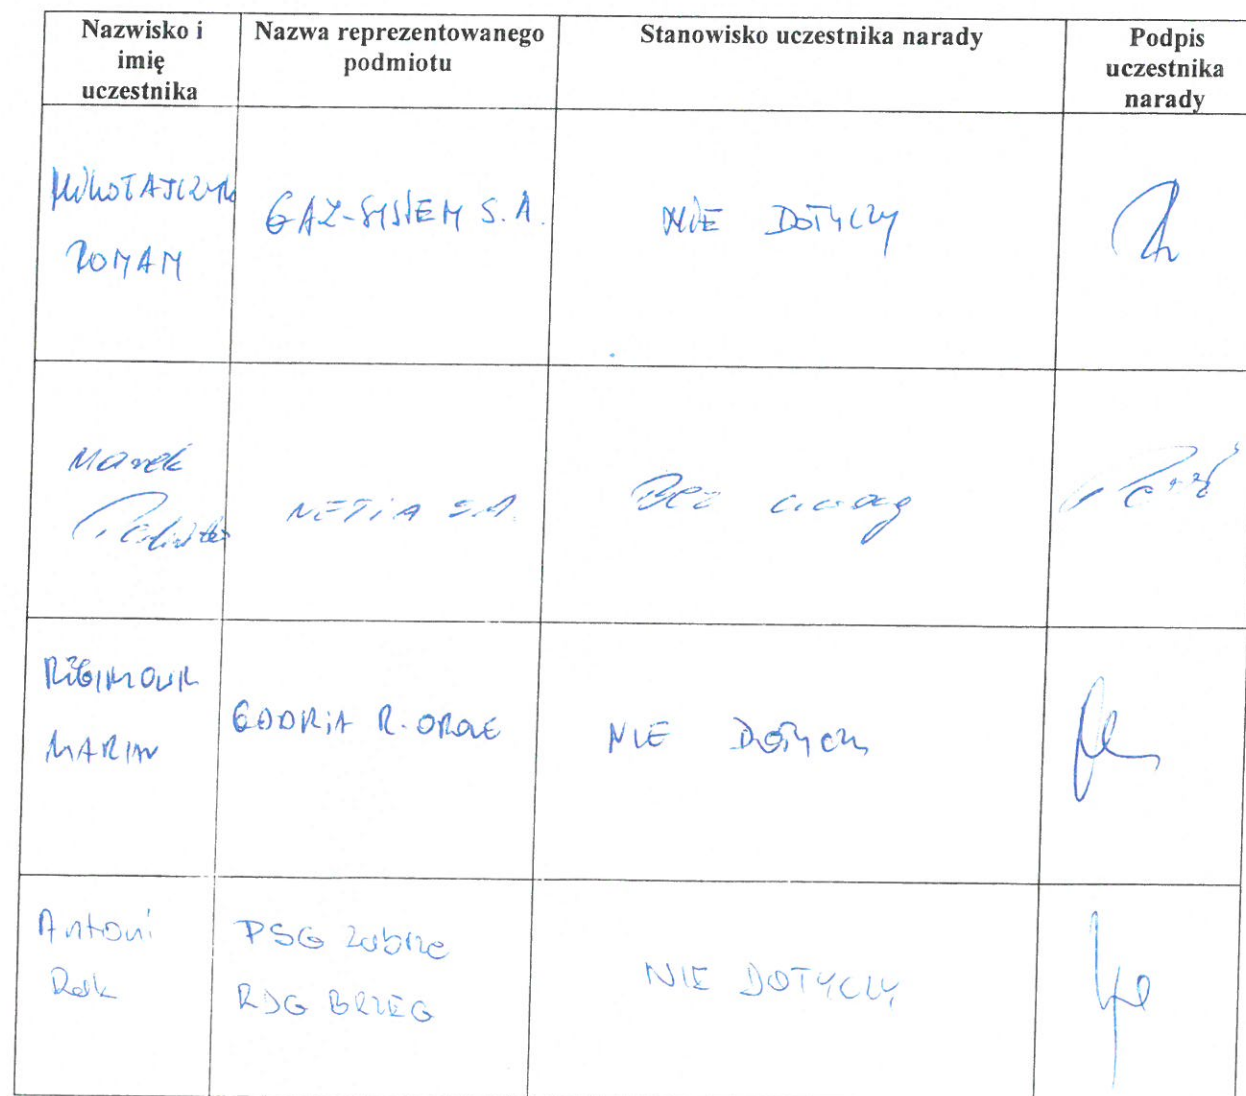 Nazwisko i
imię
uczestnika
Nazwa reprezentowanego
podmiotu
Stanowisko uczestnika narady
Podpis
uczestnika
narady
MIKOŁAJCZYK
ROMAN
GAZ-SYSTEM S.A.
NIE DOTYCZY
Marek
NETIA S.A.
Bez uwag
MARIAN
NIE DOTYCZY
Antoni
Rak
PSG Zabrze
RDG BRZEG
NIE DOTYCZY